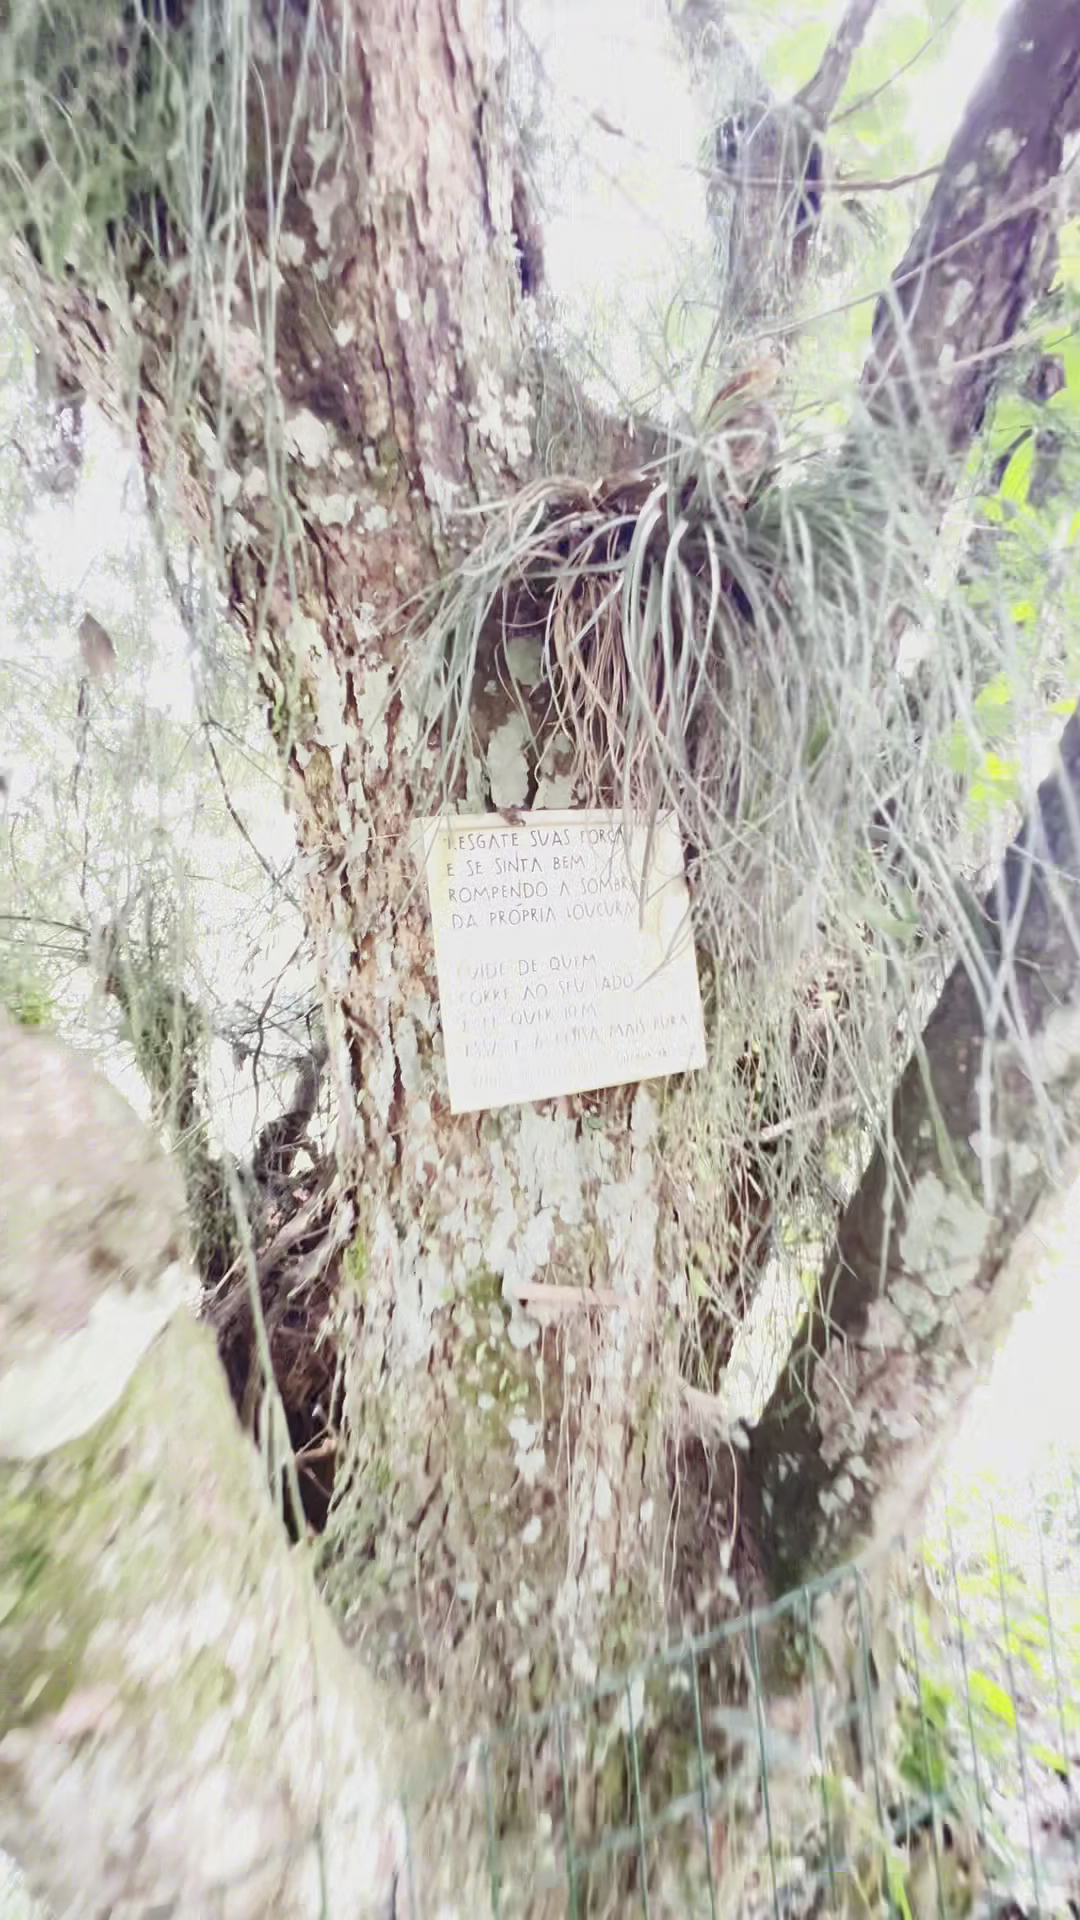 RESGATE SUAS FORÇA
E SE SINTA BEM
ROMPENDO A SOMBRA
DA PRÓPRIA LOUCURA
CUIDE DE QUEM
CORRE AO SEU LADO
E TE QUER BEM
ESSA É A COISA MAIS PURA